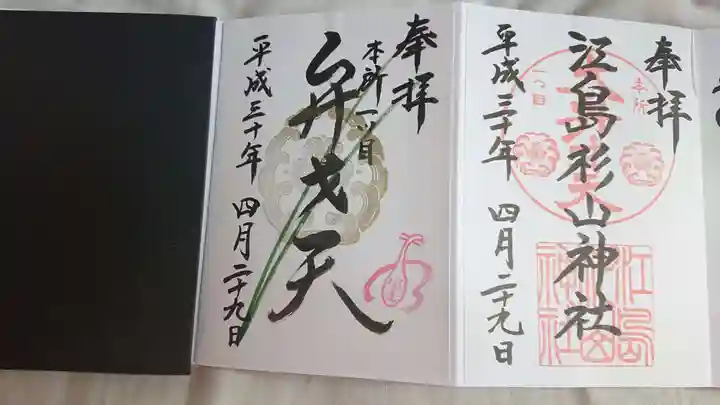 奉拝
江島杉山神社
平成三十年 四月二十九日
本所
一つ目
江島杉山神社
奉拝
本所一ツ目
弁才天
平成三十年 四月二十九日